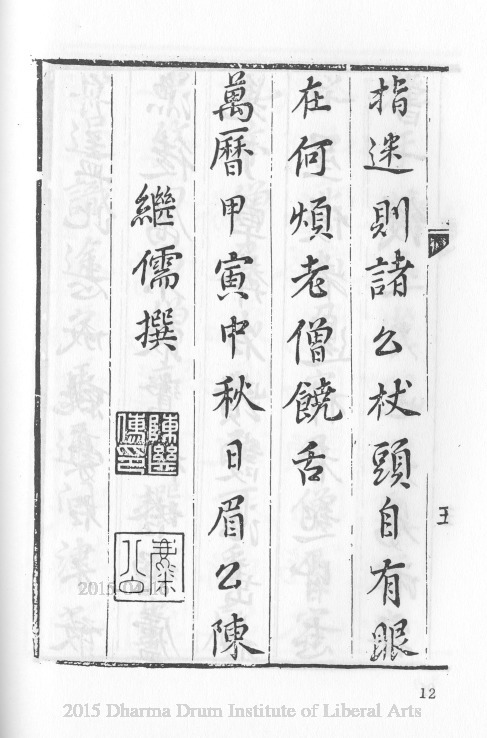 指迷則諸公杖頭自有眼
在何煩老僧饒舌
萬曆甲寅中秋日眉公陳
繼儒撰
陳繼儒印
五
12
2015-04-16
2015 Dharma Drum Institute of Liberal Arts